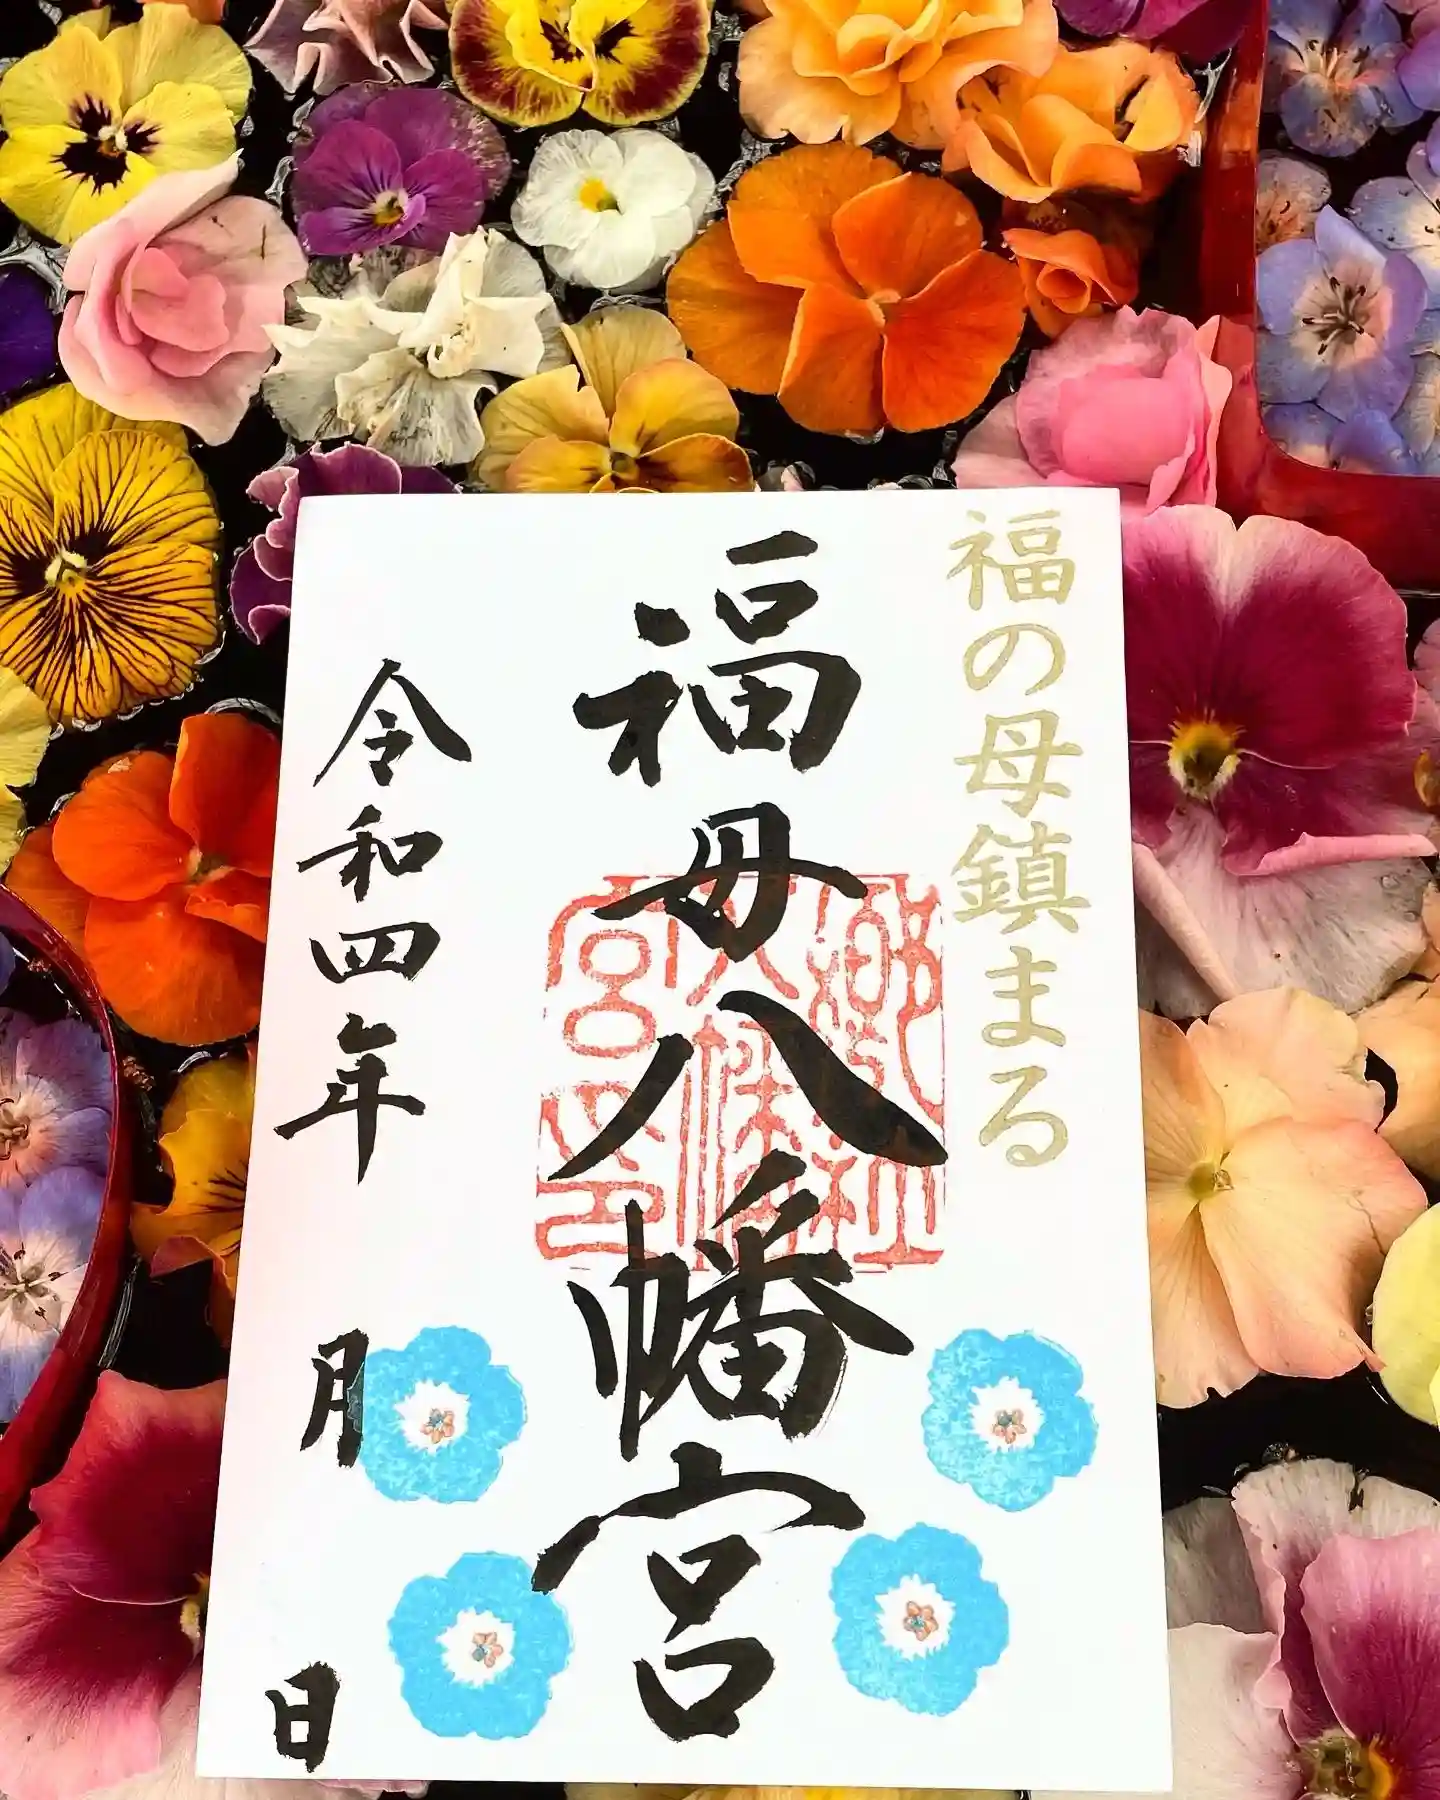 福の母鎮まる
福母八幡宮
令和四年 月 日